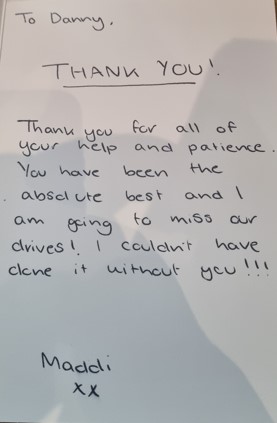 To Danny,
THANK YOU!
Thank you for all of
your help and patience.
You have been the
absolute best and I
am going to miss our
drives! I couldn't have
done it without you!!!
Maddi
xx